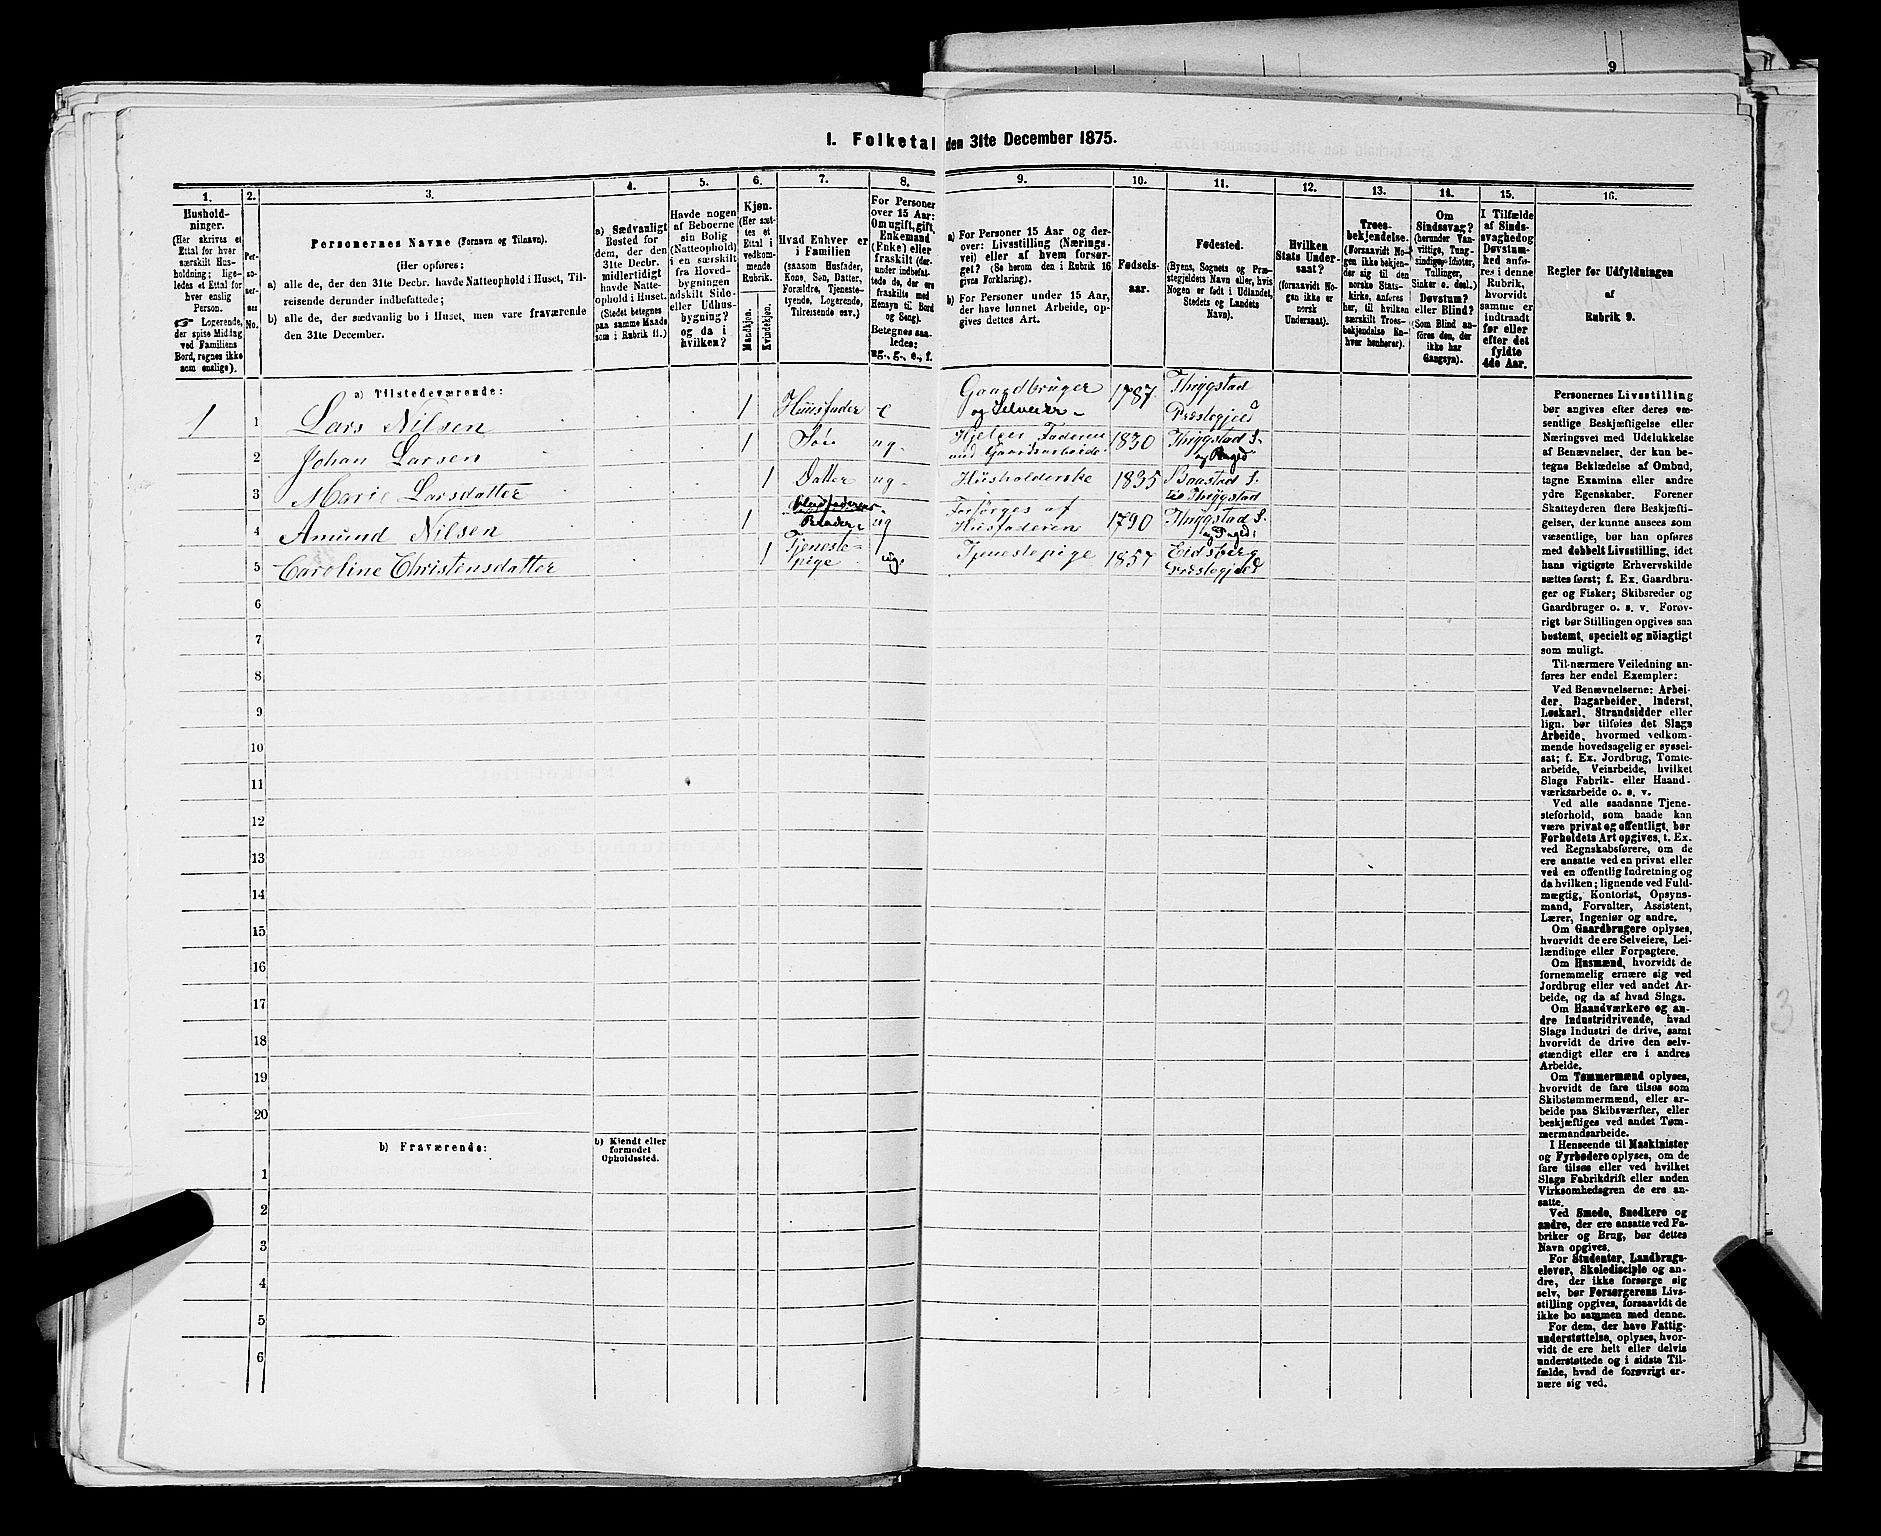 9
I. Folketal den 31te December 1875.
1.
2.
3.
4.
5.
6.
7.
8.
9.
10.
11.
12.
13.
14.
15.
16.
Hushold-
ninger.
(Her skrives et
Ettal for hver
særskilt Hus-
holdning; lige-
ledes et Ettal for
hver enslig
Person.
☞ Logerende,
der spise Middag
ved Familiens
Bord, regnes ikke
som enslige).
Per-
so-
ner-
nes
No.
Personernes Navne (Fornavn og Tilnavn).
(Her opføres:
a) alle de, der den 31te Decbr. havde Natteophold i Huset, Til-
reisende derunder indbefattede;
b) alle de, der sædvanlig bo i Huset, men vare fraværende
den 31te December.
a) Sædvanligt
Bosted for
dem, der den
31te Decbr.
midlertidigt
havde Natte-
ophold i Huset.
(Stedet betegnes
paa samme Maade
som i Rubrik 11.)
Havde nogen
af Beboerne
sin Bolig
(Natteophold)
i en særskilt
fra Hoved-
bygningen
adskilt Side-
eller Udhus-
bygning?
og da i
hvilken?
Kjøn.
(Her sæt-
tes et
Ettal i
vedkom-
mende
Rubrik.
Mandkjøn.
Kvindekjøn.
Hvad Enhver er
i Familien
(saasom Husfader,
Kone, Søn, Datter,
Forældre, Tjeneste-
tyende, Logerende,
Tilreisende osv.)
For Personer
over 15 Aar:
Om ugift, gift,
Enkemand
(Enke) eller
fraskilt (der-
under indbefat-
tede de, der ere
fraskilte med
Hensyn til Bord
og Seng).
Betegnes saa-
ledes:
ug., g., e., f.
a) For Personer 15 Aar og der-
over: Livsstilling (Nærings-
vei) eller af hvem forsør-
get? (Se herom den i Rubrik 16
givne Forklaring).
b) For Personer under 15 Aar,
der have lønnet Arbeide, op-
gives dettes Art.
Fødsels-
aar.
Fødested.
(Byens, Sognets og Præ-
stegjeldets Navn eller, hvis
Nogen er født i Udlandet,
Stedets og Landets
Navn).
Hvilken
Stats Under-
saat?
(forsaavidt No-
gen ikke er
norsk
Undersaat).
Troes-
bekjendelse.
(Forsaavidt No-
gen ikke bekjen-
der sig til den
norske Stats-
kirke, anføres
her, til hvilken
særskilt Troes-
bekjendelse En-
hver henhører).
Om
Sindssvag?
(herunder Van-
vittige, Tung-
sindige, Idioter,
Tullinger,
Sinker o. desl.)
Døvstum?
eller Blind?
(Som Blind an-
føres den, der
ikke har
Gangsyn).
I Tilfælde
af Sinds-
svaghed og
Døvstum-
hed anfø-
res i denne
Rubrik,
hvorvidt
samme er
indtraadt
før eller
efter det
fyldte
4de Aar.
Regler for Udfyldningen
af
Rubrik 9.
a) Tilstedeværende:
1 1 Lars Nilsen 1 Huusfader e Gaardbruger og Selveier 1787 Thrygstad Præstegjeld
2 Johan Larsen 1 Søn ug. Hjelper Faderen med Gaardsarbeide 1830 Thrygstad S. og Præged
3 Marie Larsdatter 1 Datter ug. Husholderske 1835 Baastad S. til Thrygstad
4 Amund Nilsen 1 Huusfaderens Broder ug Forsørges af Husfaderen 1790 Thrygstad S. og Præged
5 Caroline Christensdatter 1 Tjeneste-pige ug. Tjenestepige 1857 Eidsberg Præstegjeld
6
7
8
9
10
11
12
13
14
15
16
17
18
19
20
b) Fraværende:
b) Kjendt eller
formodet
Opholdssted.
1
2
3
4
5
6
Personernes Livsstilling
bør angives efter deres væ-
sentlige Beskjæftigelse eller
Næringsvei med Udelukkelse
af Benævnelser, der kun be-
tegne Beklædelse af Ombud,
tagne Examina eller andre
ydre Egenskaber. Forener
Skatteyderen flere Beskjæfti-
gelser, der kunne ansees som
væsentlige, bør han opføres
med dobbelt Livsstilling, idet
hans vigtigste Erhvervskilde
sættes først; f. Ex. Gaardbru-
ger og Fisker; Skibsreder og
Gaardbruger o. s. v. Forøv-
rigt bør Stillingen opgives saa
bestemt, specielt og nöiagtigt
som muligt.
Til nærmere Veiledning an-
føres her endel Exempler:
Ved Benævnelserne: Arbei-
der, Dagarbeider, Inderst,
Løskarl, Strandsidder eller
lign. bør tilføies det Slags
Arbeide, hvormed vedkom-
mende hovedsagelig er syssel-
sat; f. Ex. Jordbrug, Tomte-
arbeide, Veiarbeide, hvilket
Slags Fabrik- eller Haand-
værksarbeide o. s. v.
Ved alle saadanne Tjene-
steforhold, som baade kan
være privat og offentligt, bør
Forholdets Art opgives, t. Ex.
ved Regnskabsførere, om de
ere ansatte ved en privat eller
ved en offentlig Indretning og
da hvilken; lignende ved Fuld-
mægtig, Kontorist, Opsyns-
mand, Forvalter, Assistent,
Lærer, Ingeniør og andre.
Om Gaardbrugere oplyses,
hvorvidt de ere Selveiere, Lei-
lændinge eller Forpagtere.
Om Husmænd, hvorvidt de
fornemmelig ernære sig ved
Jordbrug eller ved andet Ar-
beide, og da af hvad Slags.
Om Haandværkere og an-
dre Industridrivende, hvad
Slags Industri de drive, samt
hvorvidt de drive den selv-
stændigt eller ere i andres
Arbeide.
Om Tømmermænd oplyses,
hvorvidt de fare tilsøs som
Skibstømmermænd, eller ar-
beide paa Skibsværfter, eller
beskjæftiges ved andet Tøm-
mermandsarbeide.
I Henseende til Maskinister
og Fyrbødere oplyses, om de
fare tilsøs eller ved hvilket
Slags Fabrikdrift eller anden
Virksomhedsgren de ere an-
satte.
Ved Smede, Snedkere og
andre, der ere ansatte ved Fa-
briker og Brug, bør dettes
Navn opgives.
For Studenter, Landbrugs-
elever, Skoledisciple og an-
dre, der ikke forsørge sig
selv, bør Forsørgerens Livs-
stilling opgives, forsaavidt de
ikke bo sammen med denne.
For dem, der have Fattig-
understøttelse, oplyses, hvor-
vidt de ere helt eller delvis
understøttede og i sidste Til-
fælde, hvad de forøvrigt er-
nære sig ved.
3